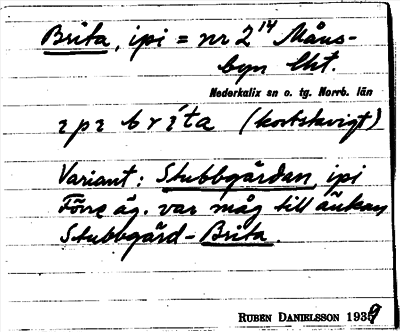 Brita, ipi = nr 2¹⁴ Måns-
byn Lht.
Nederkalix sn o. tg. Norrb. län
brita (kortstavigt)
Variant: Stubbgårdan, ipi
Förre äg. var måg till änkan
Stubbgård-Brita
RUBEN DANIELSSON 1939